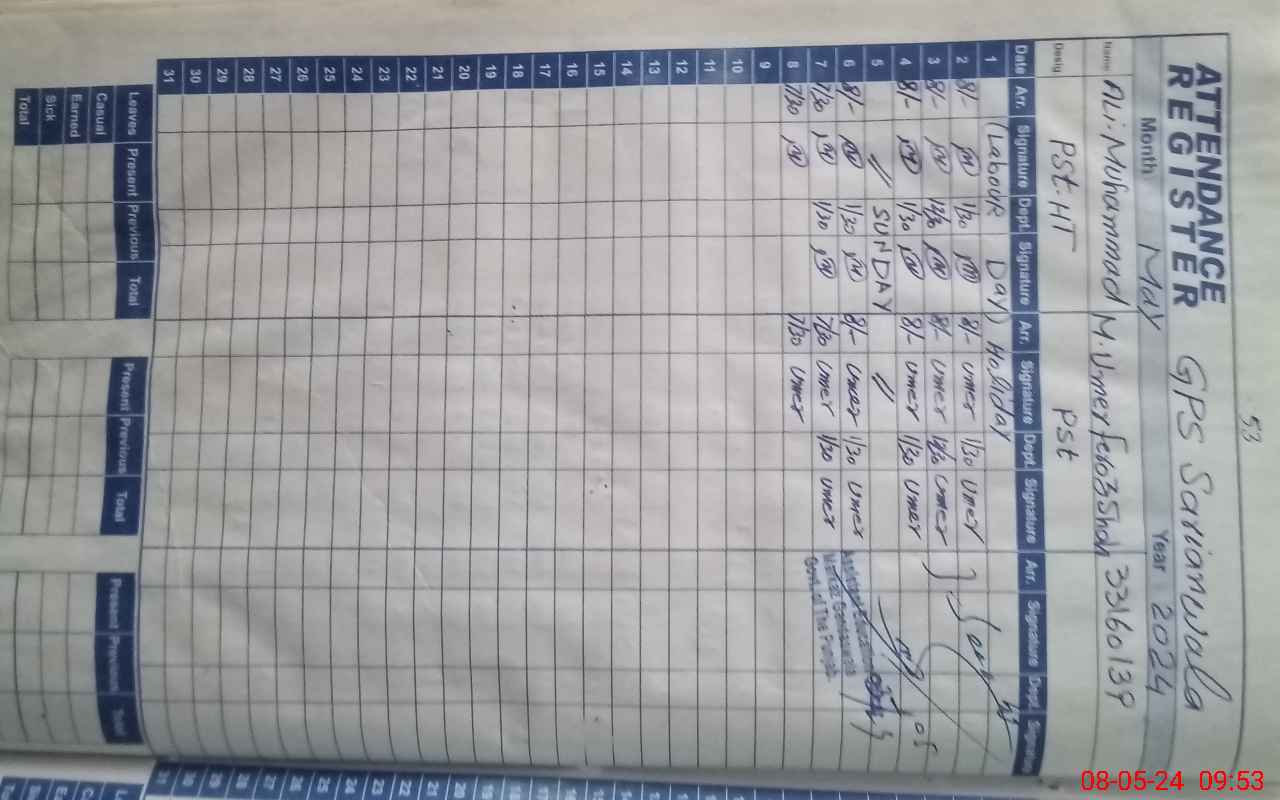 53
ATTENDANCE REGISTER GPS Sarianwala
Month May Year 2024
Name Ali Muhammad M. Umer 33160139
Desig PST-HT PST
Date Arr. Signature Dept. Signature Arr. Signature Dept. Signature Arr. Signature Dept. Signature
1 (Labour Day) Holiday
2 8/- 1/30 8/- Umer 1/30 Umer
3 8/- 8/- Umer Umer
4 8/- 1/30 8/- Umer 1/30 Umer
5 // SUNDAY //
6 8/- 1/30 8/- Umer 1/30 Umer
7 7/30 1/30 7/30 Umer 1/30 Umer
8 7/30 7/30 Umer
Govt. of The Punjab
9
10
11
12
13
14
15
16
17
18
19
20
21
22
23
24
25
26
27
28
29
30
31
Leaves Present Previous Total Present Previous Total Present Previous Total
Casual
Earned
Sick
Total
08-05-24 09:53